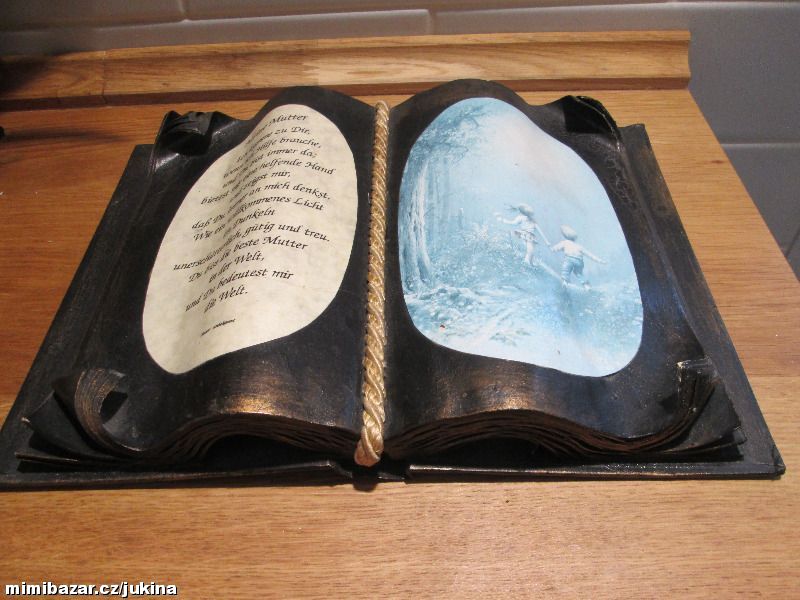 Mutter
zu Dir,
Hilfe brauche,
immer da;
helfende Hand
mir,
daß Du an mich denkst.
Wie ein willkommenes Licht
Dunkeln
unerschütterlich, gütig und treu.
Du bist die beste Mutter
in der Welt,
und Du bedeutest mir
die Welt.
mimibazar.cz/jukina